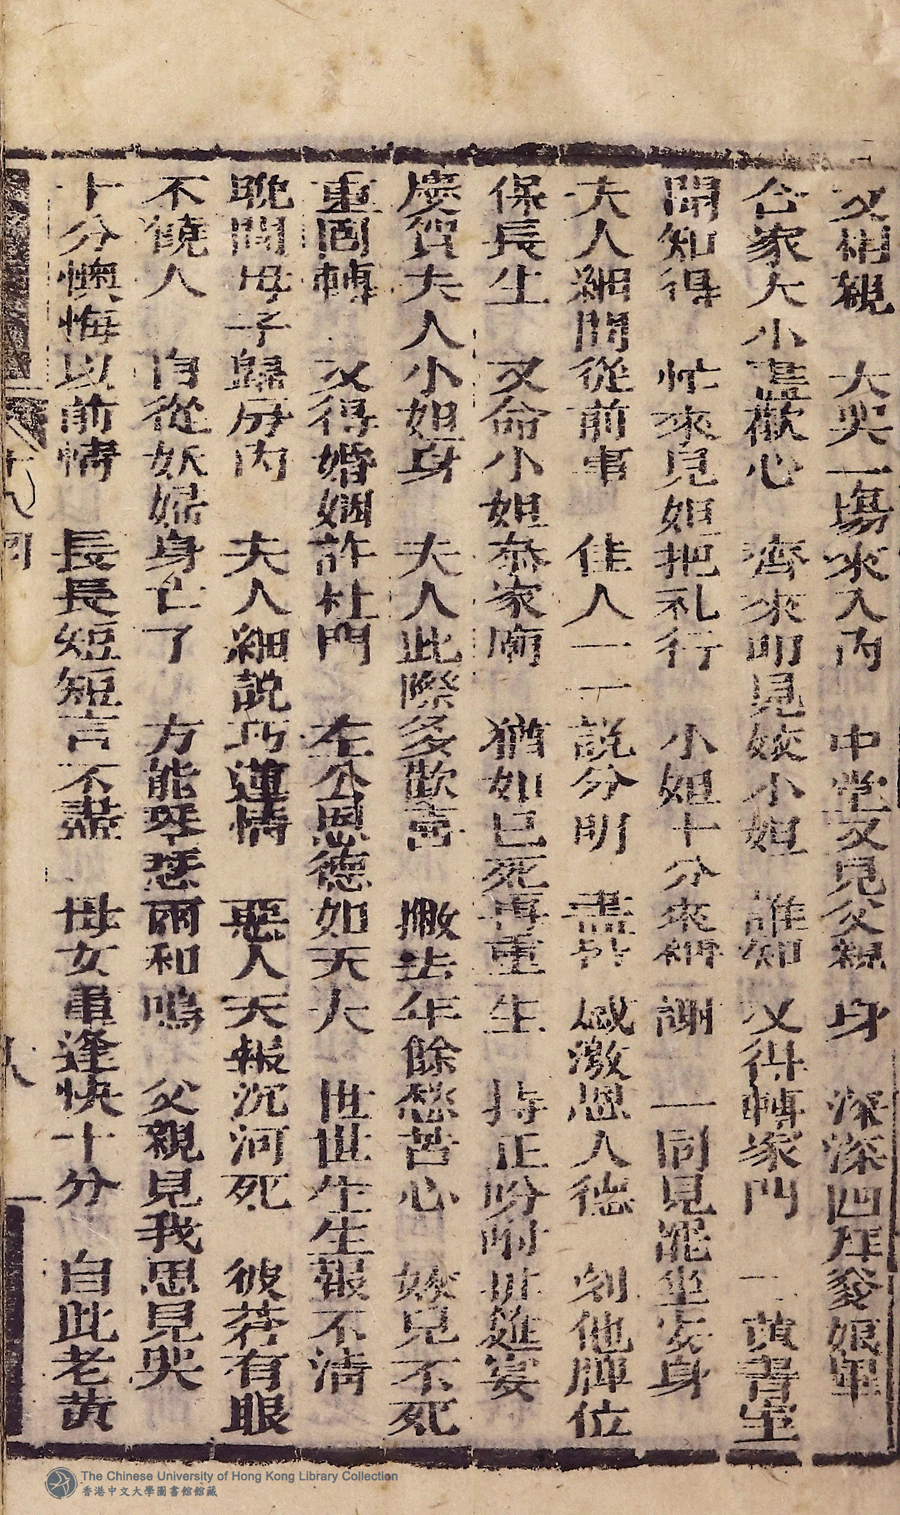 父相親　大哭一場來入內　中堂又見父親身　深深四拜爹娘畢
合家大小盡歡心　齊來叩見姣小姐　誰知又得轉家門　一黃書生
聞知得　忙來見姐把礼行　小姐十分來稱謝　一同見罷坐安身
夫人細問從前事　佳人一一說分明　盡皆感激恩人德　刻他牌位
保長生　又命小姐叅家廟　猶如已死再重生　持正吩咐排筵宴
慶賀夫人小姐身　夫人此際多歡喜　撇去年餘愁苦心　姣兒不死
重回轉　又得婚姻許杜門　左公恩德如天大　世世生生報不清
晚間母子歸房內　夫人細說巧蓮情　惡人天報沉河死　彼蒼有眼
不饒人　自從妖婦身亡了　方能琴瑟兩和鳴　父親見我思見哭
十分懊悔以前情　長長短短言不盡　母女重逢快十分　自此老黃
The Chinese University of Hong Kong Library Collection
香港中文大學圖書館館藏